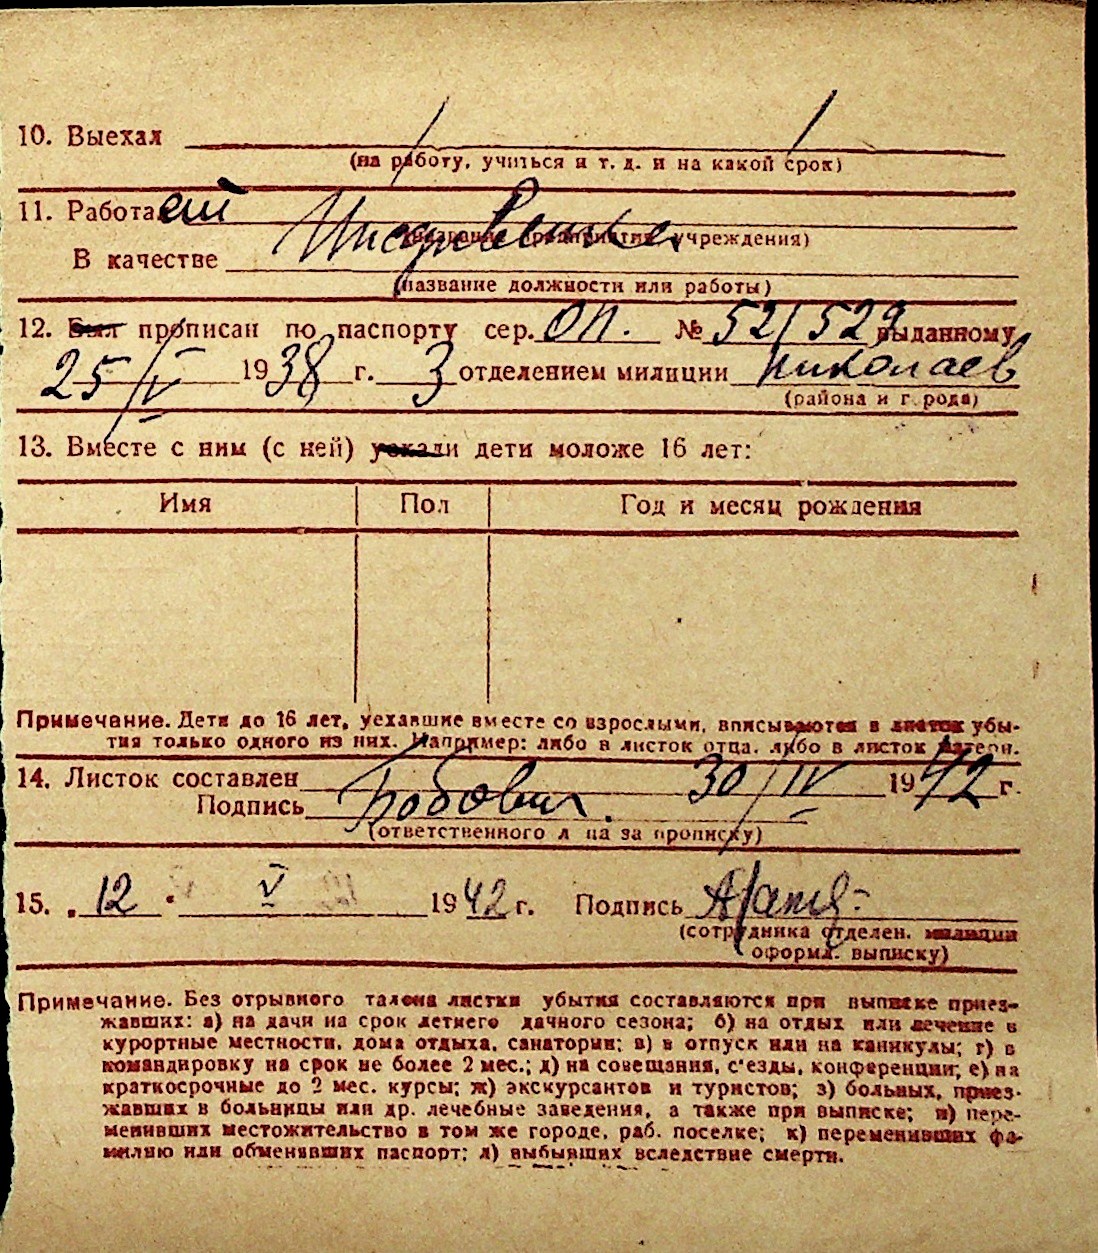 10. Выехал
(на работу, учиться и т. д. и на какой срок)
11. Работает
(название предприятия, учреждения)
В качестве Иждивенка
(название должности или работы)
12. Был прописан по паспорту сер. ОП. № 52/529 выданному
25/IV 1938 г. 3 отделением милиции Николаев
(района и г рода)
13. Вместе с ним (с ней) уехали дети моложе 16 лет:
Имя Пол Год и месяц рождения
Примечание. Дети до 16 лет, уехавшие вместе со взрослыми, вписываются в листок убы-
тия только одного из них. Например: либо в листок отца, либо в листок матери.
14. Листок составлен 30/IV 1942 г.
Подпись
(ответственного л ца за прописку)
15. 12 V 1942 г. Подпись
(сотрудника отделен. милиции
оформл. выписку)
Примечание. Без отрывного талона листки убытия составляются при выписке приез-
жавших: а) на дачи на срок летнего дачного сезона; б) на отдых или лечение в
курортные местности, дома отдыха, санатории; в) в отпуск или на каникулы; г) в
командировку на срок не более 2 мес.; д) на совещания, с'езды, конференции; е) на
краткосрочные до 2 мес. курсы; ж) экскурсантов и туристов; з) больных, приез-
жавших в больницы или др. лечебные заведения, а также при выписке; и) пере-
менивших местожительство в том же городе, раб. поселке; к) переменивших фа-
милию или обменявших паспорт; л) выбывших вследствие смерти.